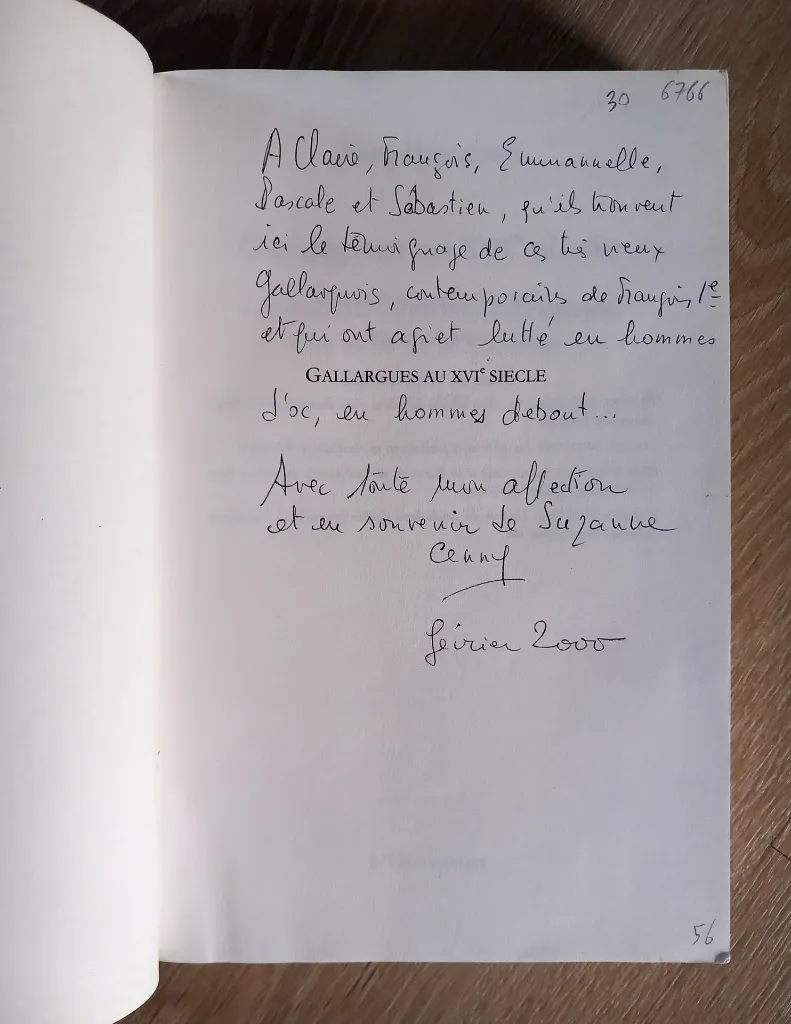 30 6766
A Claire, François, Emmanuelle,
Pascale et Sébastien, qu'ils trouvent
ici le témoignage de ces très vieux
Gallarguois, contemporains de François 1e
et qui ont agi et lutté en hommes
GALLARGUES AU XVIe SIECLE
d'oc, en hommes debout...
Avec toute mon affection
et en souvenir de Suzanne
février 2000
56